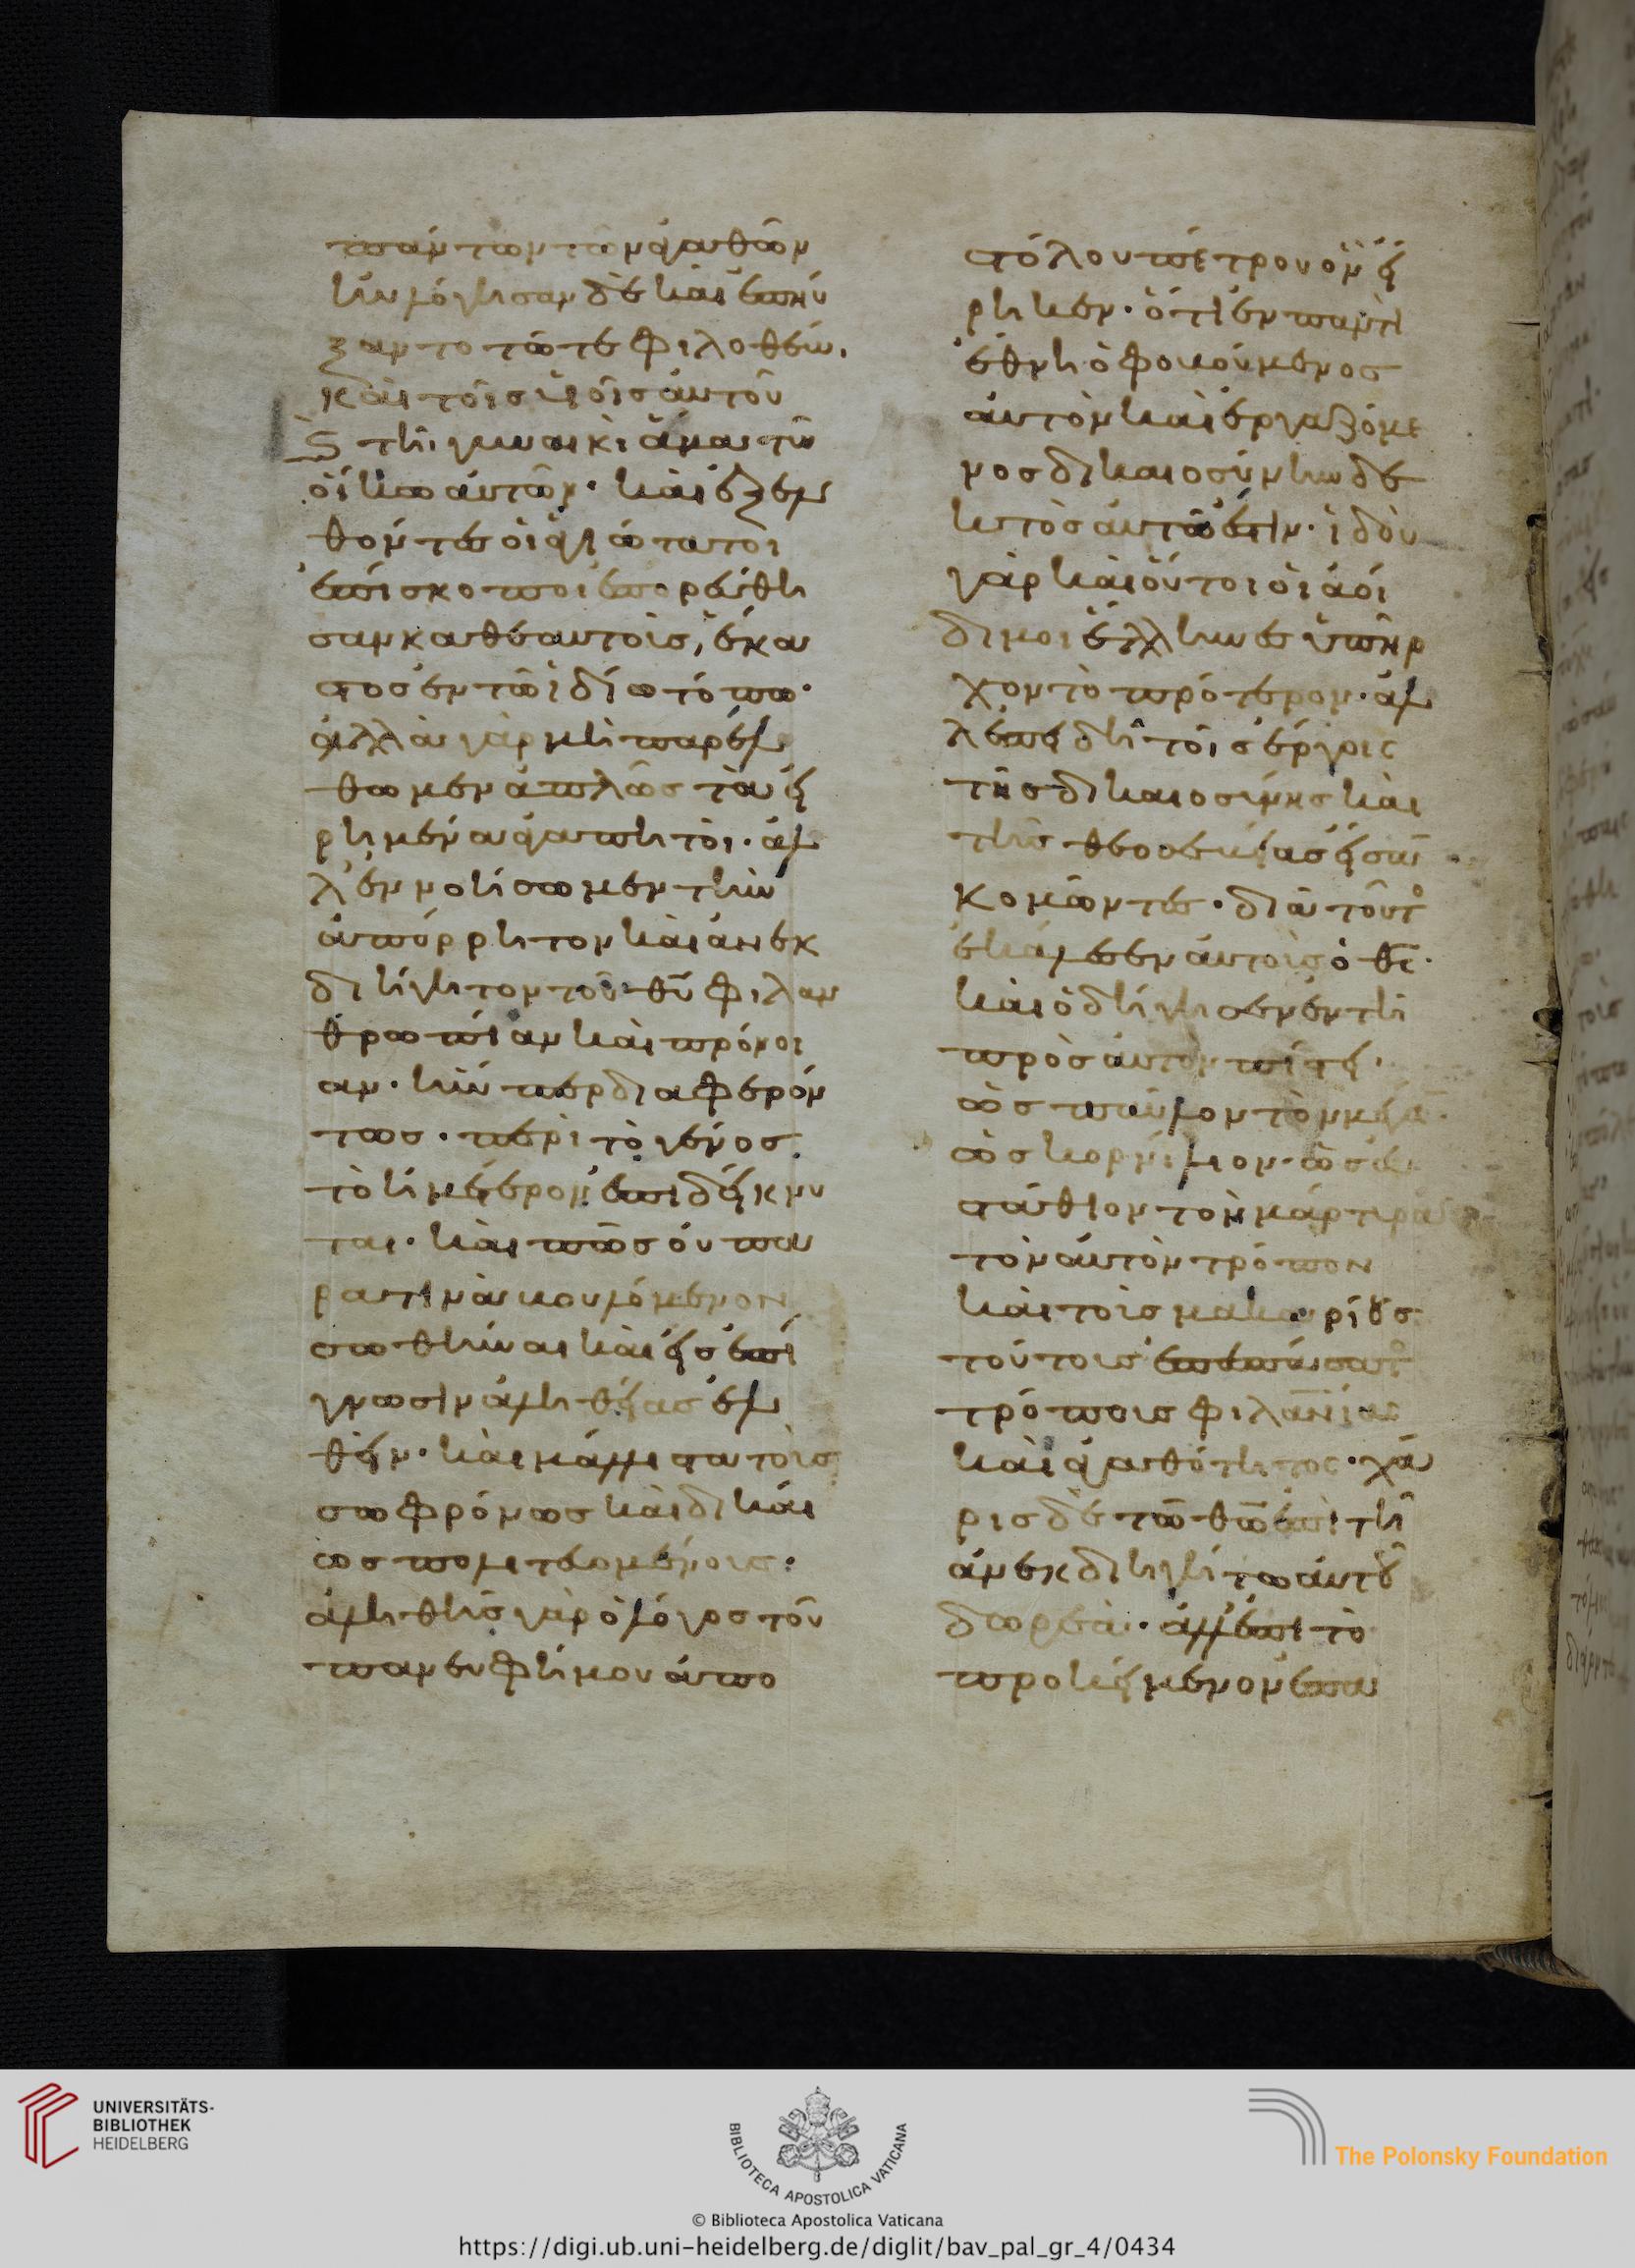 πάντων τῶν ἀγαθῶν
ηὐλόγησαν δὲ καὶ ἐπηύ
ξαντο τῶ τε φιλοθέω.
καὶ τοῖς υἱοῖς αὐτοῦ
ϗ τῆ γυναικὶ ἅμα τῶ
οἴκω αὐτῶν· καὶ ἐξελ
θόντες οἱ ἁγιώτατοι
ἐπίσκοποι ἐπορεύθη
σαν καθ' ἑαυτοὺς, ἕκα
στος ἐν τῶ ἰδίω τόπω·
ἀλλὰ γὰρ μὴ παρέλ
θωμεν ἁπλῶς τὰ εἰ
ρημένα ἀγαπητοί· ἀλ
λ' ἐννοήσωμεν τὴν
ἀπόρρητον καὶ ἀνεκ
διήγητον τοῦ θυ φιλαν
θρωπίαν καὶ πρόνοι
αν· ἥνπερ διαφερόν
τως· περὶ τὸ γένος
τὸ ἡμέτερον ἐπιδείκνυ
ται· καὶ πῶς οὐ πα
ρατὶν βουλόμενον
σωθῆναι καὶ εἰς ἐπί
γνωσιν ἀληθείας ἐλ
θεῖν· καὶ μάλιστα τοῖς
σωφρόνως καὶ δικαί
ως πολιτευομένοις·
ἀληθὴς γὰρ ὁ λόγος τοῦ
πανευφήμου ἀπο
στόλου πέτρου ὃν εἴ
ρηκεν· ὅτι ἐν παντὶ
ἔθνει ὁ φοβούμενος
αὐτὸν καὶ ἐργαζόμε
νος δικαιοσύνην δε
κτὸς αὐτῶ ἐστιν· ἰδοὺ
γὰρ καὶ οὗτοι οἱ ἀοί
διμοι ἕλληνες ὑπῆρ
χον τὸ πρότερον· ἀλ
λ' ἐπειδὴ τοῖς ἔργοις
τῆς δικαιοσύνης καὶ
τῆς θεοσεβείας ἦσαν
κομῶντες· διὰ τοῦτο
ἐκάλεσεν αὐτοὺς ὁ θς·
καὶ ὁδήγησεν ἐν τῆ
πρὸς αὐτὸν πίστει·
ὡς παῦλον τὸν μέγαν·
ὡς κορνίλιον· ὡς εὐ
στάθιον τὸν μάρτυρα
τὸν αὐτὸν τρόπον
καὶ τοὺς μακαρίους
τούτους ἐπεσπάσατο
τρόποις φιλανίας
καὶ ἀγαθότητος· χά
ρις δὲ τῶ θῶ ἐπὶ τῆ
ἀνεκδιηγήτω αὐτοῦ
δωρεᾶ· ἀλλ' ἐπὶ τὸ
προκείμενον ἐπα
UNIVERSITÄTS-
BIBLIOTHEK
HEIDELBERG
BIBLIOTECA APOSTOLICA VATICANA
The Polonsky Foundation
© Biblioteca Apostolica Vaticana
https://digi.ub.uni-heidelberg.de/diglit/bav_pal_gr_4/0434